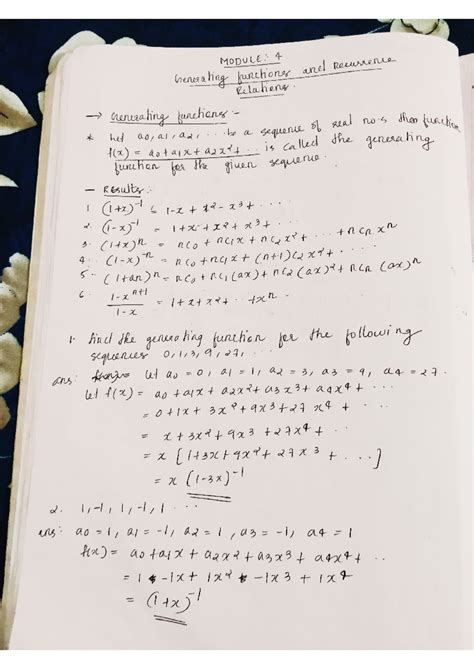 MODULE: 4
Generating functions and Recurrence
Relations.
→ Generating functions :-
* Let a0, a1, a2, ... be a sequence of real no's then function
f(x) = a0 + a1x + a2x² + ... is called the generating
function for the given sequence.
- Results :-
1 (1+x)⁻¹ = 1-x + x² - x³ + ...
2. (1-x)⁻¹ = 1+x+x²+x³+...
3. (1+x)ⁿ = nC0 + nC1x + nC2x² + ... + nCn xⁿ
4. (1-x)⁻ⁿ = nC0 + nC1x + (n+1)C2x² + ....
5. (1+ax)ⁿ = nC0 + nC1(ax) + nC2(ax)² + nCn (ax)ⁿ
6. (1-xⁿ⁺¹)/(1-x) = 1+x+x²+...+xⁿ.
1. Find the generating function for the following
sequences 0,1,3,9,27,...
ans: Let a0 = 0, a1 = 1, a2 = 3, a3 = 9, a4 = 27.
Let f(x) = a0 + a1x + a2x² + a3x³ + a4x⁴ + ...
= 0+1x + 3x² + 9x³ + 27x⁴ + ...
= x + 3x² + 9x³ + 27x⁴ + ...
= x [1+3x+9x²+27x³ + ....]
= x (1-3x)⁻¹
2. 1,-1, 1,-1, 1 ...
ans: a0 = 1, a1 = -1, a2 = 1, a3 = -1, a4 = 1
f(x) = a0 + a1x + a2x² + a3x³ + a4x⁴ + ..
= 1 -1x + 1x² -1x3 + 1x⁴
= (1+x)⁻¹